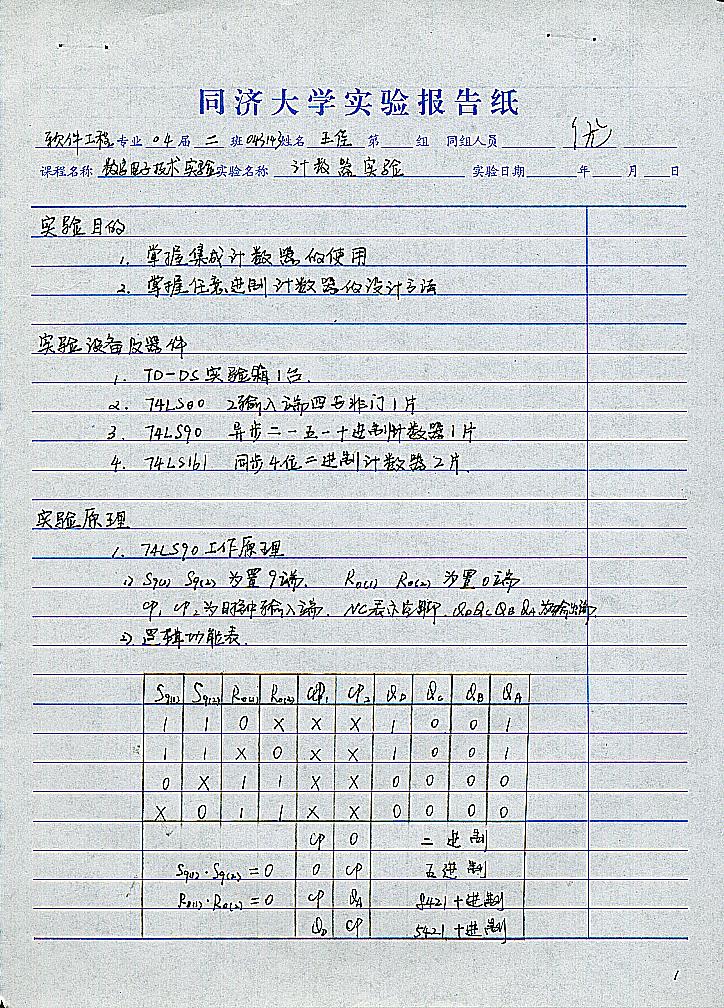 同济大学实验报告纸
软件工程专业 04届 二 班 姓名 王佳 第 组 同组人员 优
课程名称 数字电子技术实验 实验名称 计数器实验 实验日期 年 月 日
实验目的
1. 掌握集成计数器的使用
2. 掌握任意进制计数器的设计方法
实验设备及器件
1. TD-DS实验箱1台.
2. 74LS00 2输入端四与非门1片
3. 74LS90 异步二-五-十进制计数器1片
4. 74LS161 同步4位二进制计数器2片.
实验原理
1. 74LS90工作原理
1) S9(1) S9(2) 为置9端. R0(1) R0(2) 为置0端
CP1 CP2为时钟输入端. NC表示空脚. QD QC QB QA为输出端.
2) 逻辑功能表.
S9(1) S9(2) R0(1) R0(2) CP1 CP2 QD QC QB QA
1 1 0 X X X 1 0 0 1
1 1 X 0 X X 1 0 0 1
0 X 1 1 X X 0 0 0 0
X 0 1 1 X X 0 0 0 0
CP 0 二进制
S9(1)·S9(2)=0 0 CP 五进制
R0(1)·R0(2)=0 CP QA 8421十进制
QD CP 5421十进制
1